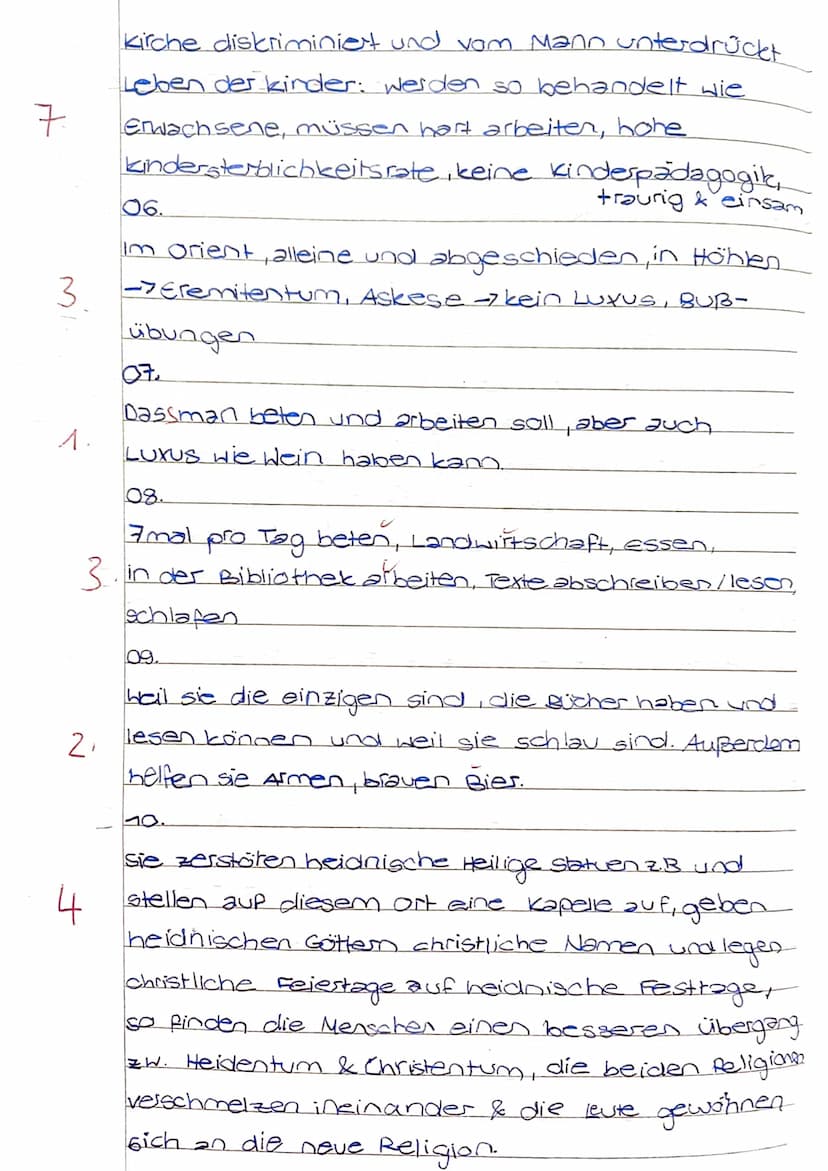 Kirche diskriminiert und vom Mann unterdrückt
Leben der Kinder: werden so behandelt wie
7
Erwachsene, müssen hart arbeiten, hohe
Kindersterblichkeitsrate, keine Kinderpädagogik,
traurig & einsam
06.
Im Orient, alleine und abgeschieden, in Höhlen
3.
→ Eremitentum, Askese → kein Luxus, Buß-
übungen
07.
Dass man beten und arbeiten soll, aber auch
1.
Luxus wie Wein haben kann.
08.
7mal pro Tag beten, Landwirtschaft, essen,
3.
in der Bibliothek arbeiten, Texte abschreiben/lesen,
schlafen
09.
Weil sie die einzigen sind, die Bücher haben und
2.
lesen können und weil sie schlau sind. Außerdem
helfen sie Armen, brauen Bier.
10.
Sie zerstören heidnische Heilige statuen z.B und
4
stellen auf diesem Ort eine Kapelle auf, geben
heidnischen Göttern christliche Namen und legen
christliche Feiertage auf heidnische Festtage,
so finden die Menschen einen besseren Übergang
zw. Heidentum & Christentum, die beiden Religionen
verschmelzen ineinander & die Leute gewöhnen
sich an die neue Religion.